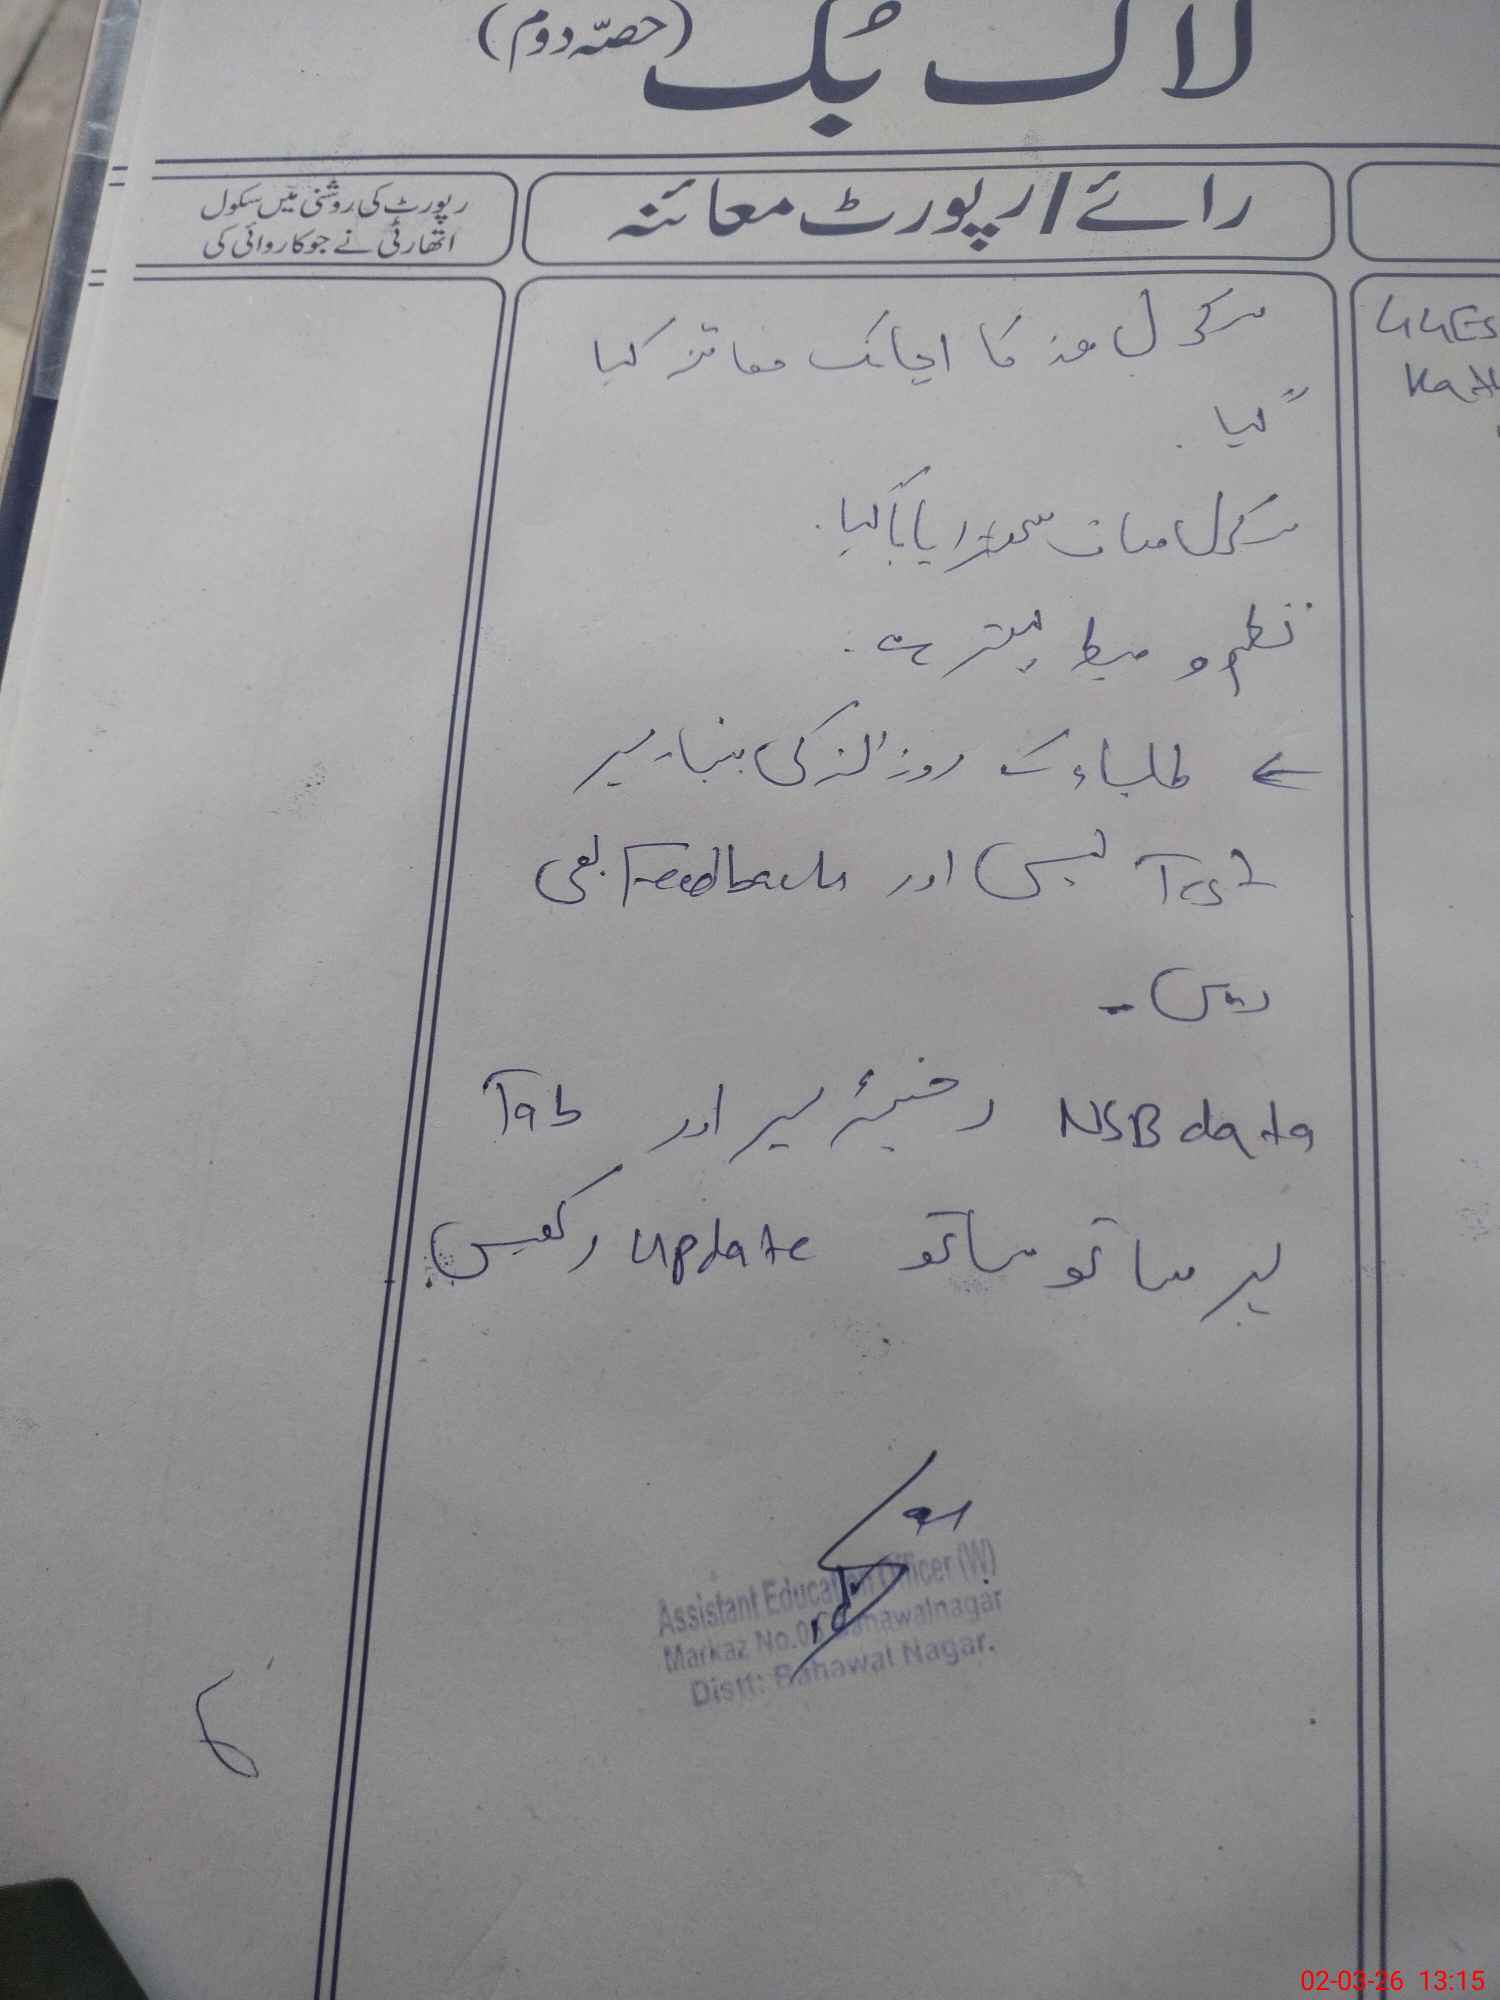 لاگ بُک (حصّہ دوم)
رائے / رپورٹ معائنہ
رپورٹ کی روشنی میں سکول
اتھارٹی نے جو کاروائی کی
سکول ھذ کا اچانک معائنہ کیا
گیا.
سکول صاف ستھرا پایا گیا.
نظم و ضبط بہتر ہے.
← طلباء کے روزانہ کی بنیاد پر
Test لیں اور Feedback بھی
دیں۔
NSB data رجسٹر پر اور Tab
پر ساتھ ساتھ update رکھیں
Assistant Education Officer (W)
Markaz No.0 Bahawalnagar
Distt: Bahawal Nagar.
02-03-26 13:15